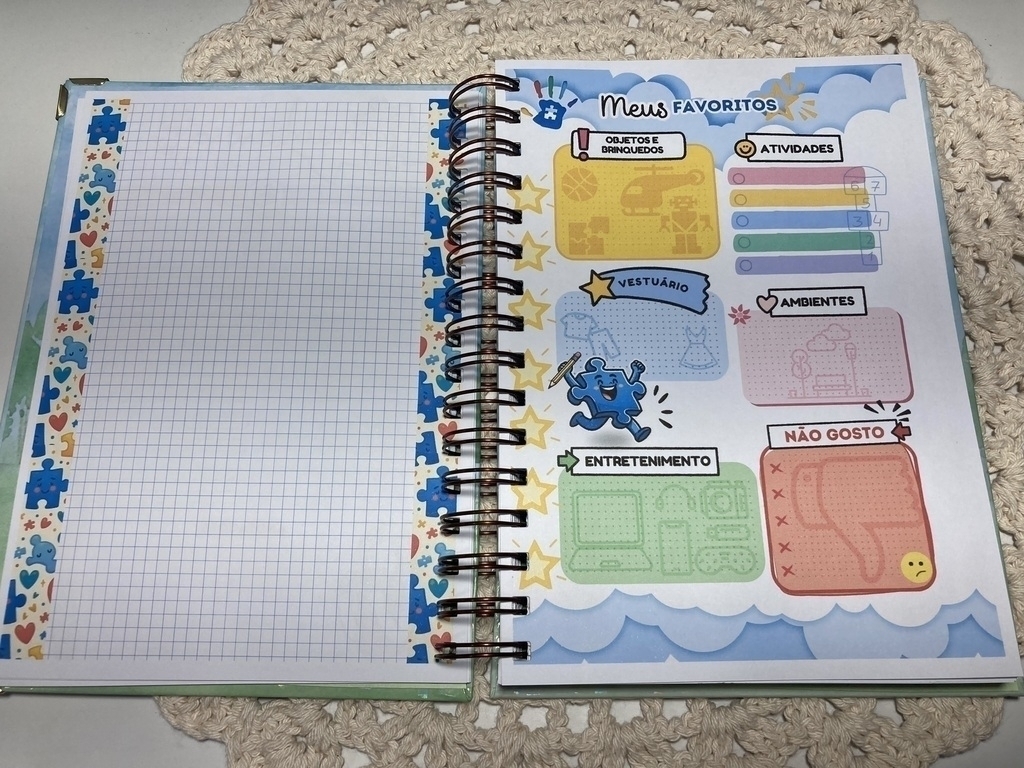 Meus FAVORITOS
OBJETOS E
BRINQUEDOS
ATIVIDADES
6 7
5
3 4
VESTUÁRIO
AMBIENTES
NÃO GOSTO
ENTRETENIMENTO